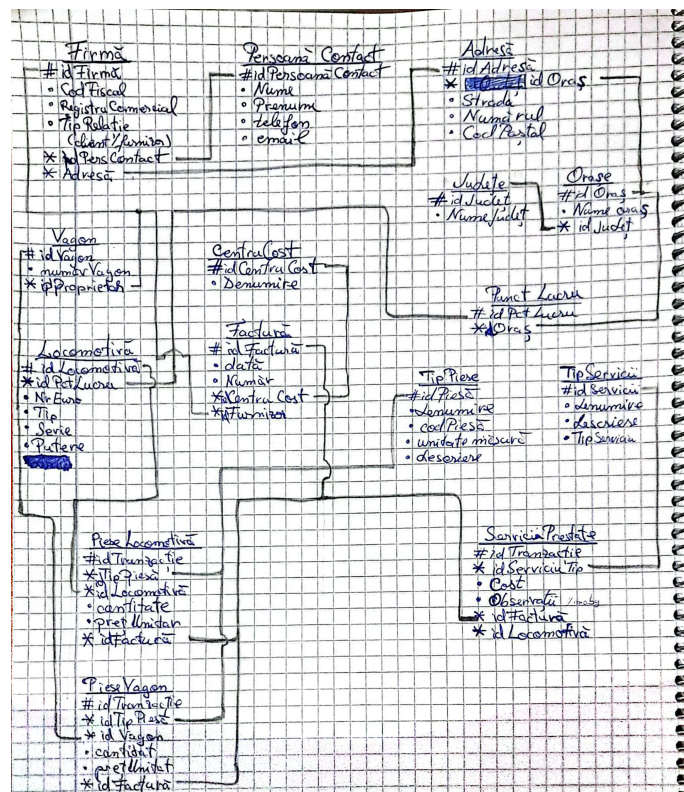 Firmă
# idFirmă
• Cod Fiscal
• Registru Comercial
• Tip Relație
(client/furnizor)
* idPersContact
* Adresă
Persoană Contact
# idPersoană Contact
• Nume
• Prenume
• telefon
• email
Adresă
# idAdresă
* idOraș
• Stradă
• Numărul
• Cod Poștal
Județe
# idJudeț
• Nume județ
Orașe
# idOraș
• Nume oraș
* idJudeț
Vagon
# idVagon
• număr Vagon
* idProprietar
Centru Cost
# idCentru Cost
• Denumire
Punct Lucru
# idPct Lucru
* idOraș
Locomotivă
# idLocomotivă
* idPctLucru
• Nr Euro
• Tip
• Serie
• Putere
Factură
# idFactură
• dată
• Număr
* Centru Cost
* idFurnizor
Tip Piese
# idPiesă
• denumire
• codPiesă
• unitate măsură
• descriere
Tip Servicii
# idServicii
• denumire
• descriere
• Tip Serviciu
Piese Locomotivă
# idTranzacție
* Tip Piesă
* idLocomotivă
• cantitate
• preț Unitar
* idFactură
Servicii Prestate
# idTranzacție
* idServiciu Tip
• Cost
• Observații
* idFactură
* idLocomotivă
Piese Vagon
# idTranzacție
* idTip Piesă
* id Vagon
• cantitat
• preț Unitat
* idFactură